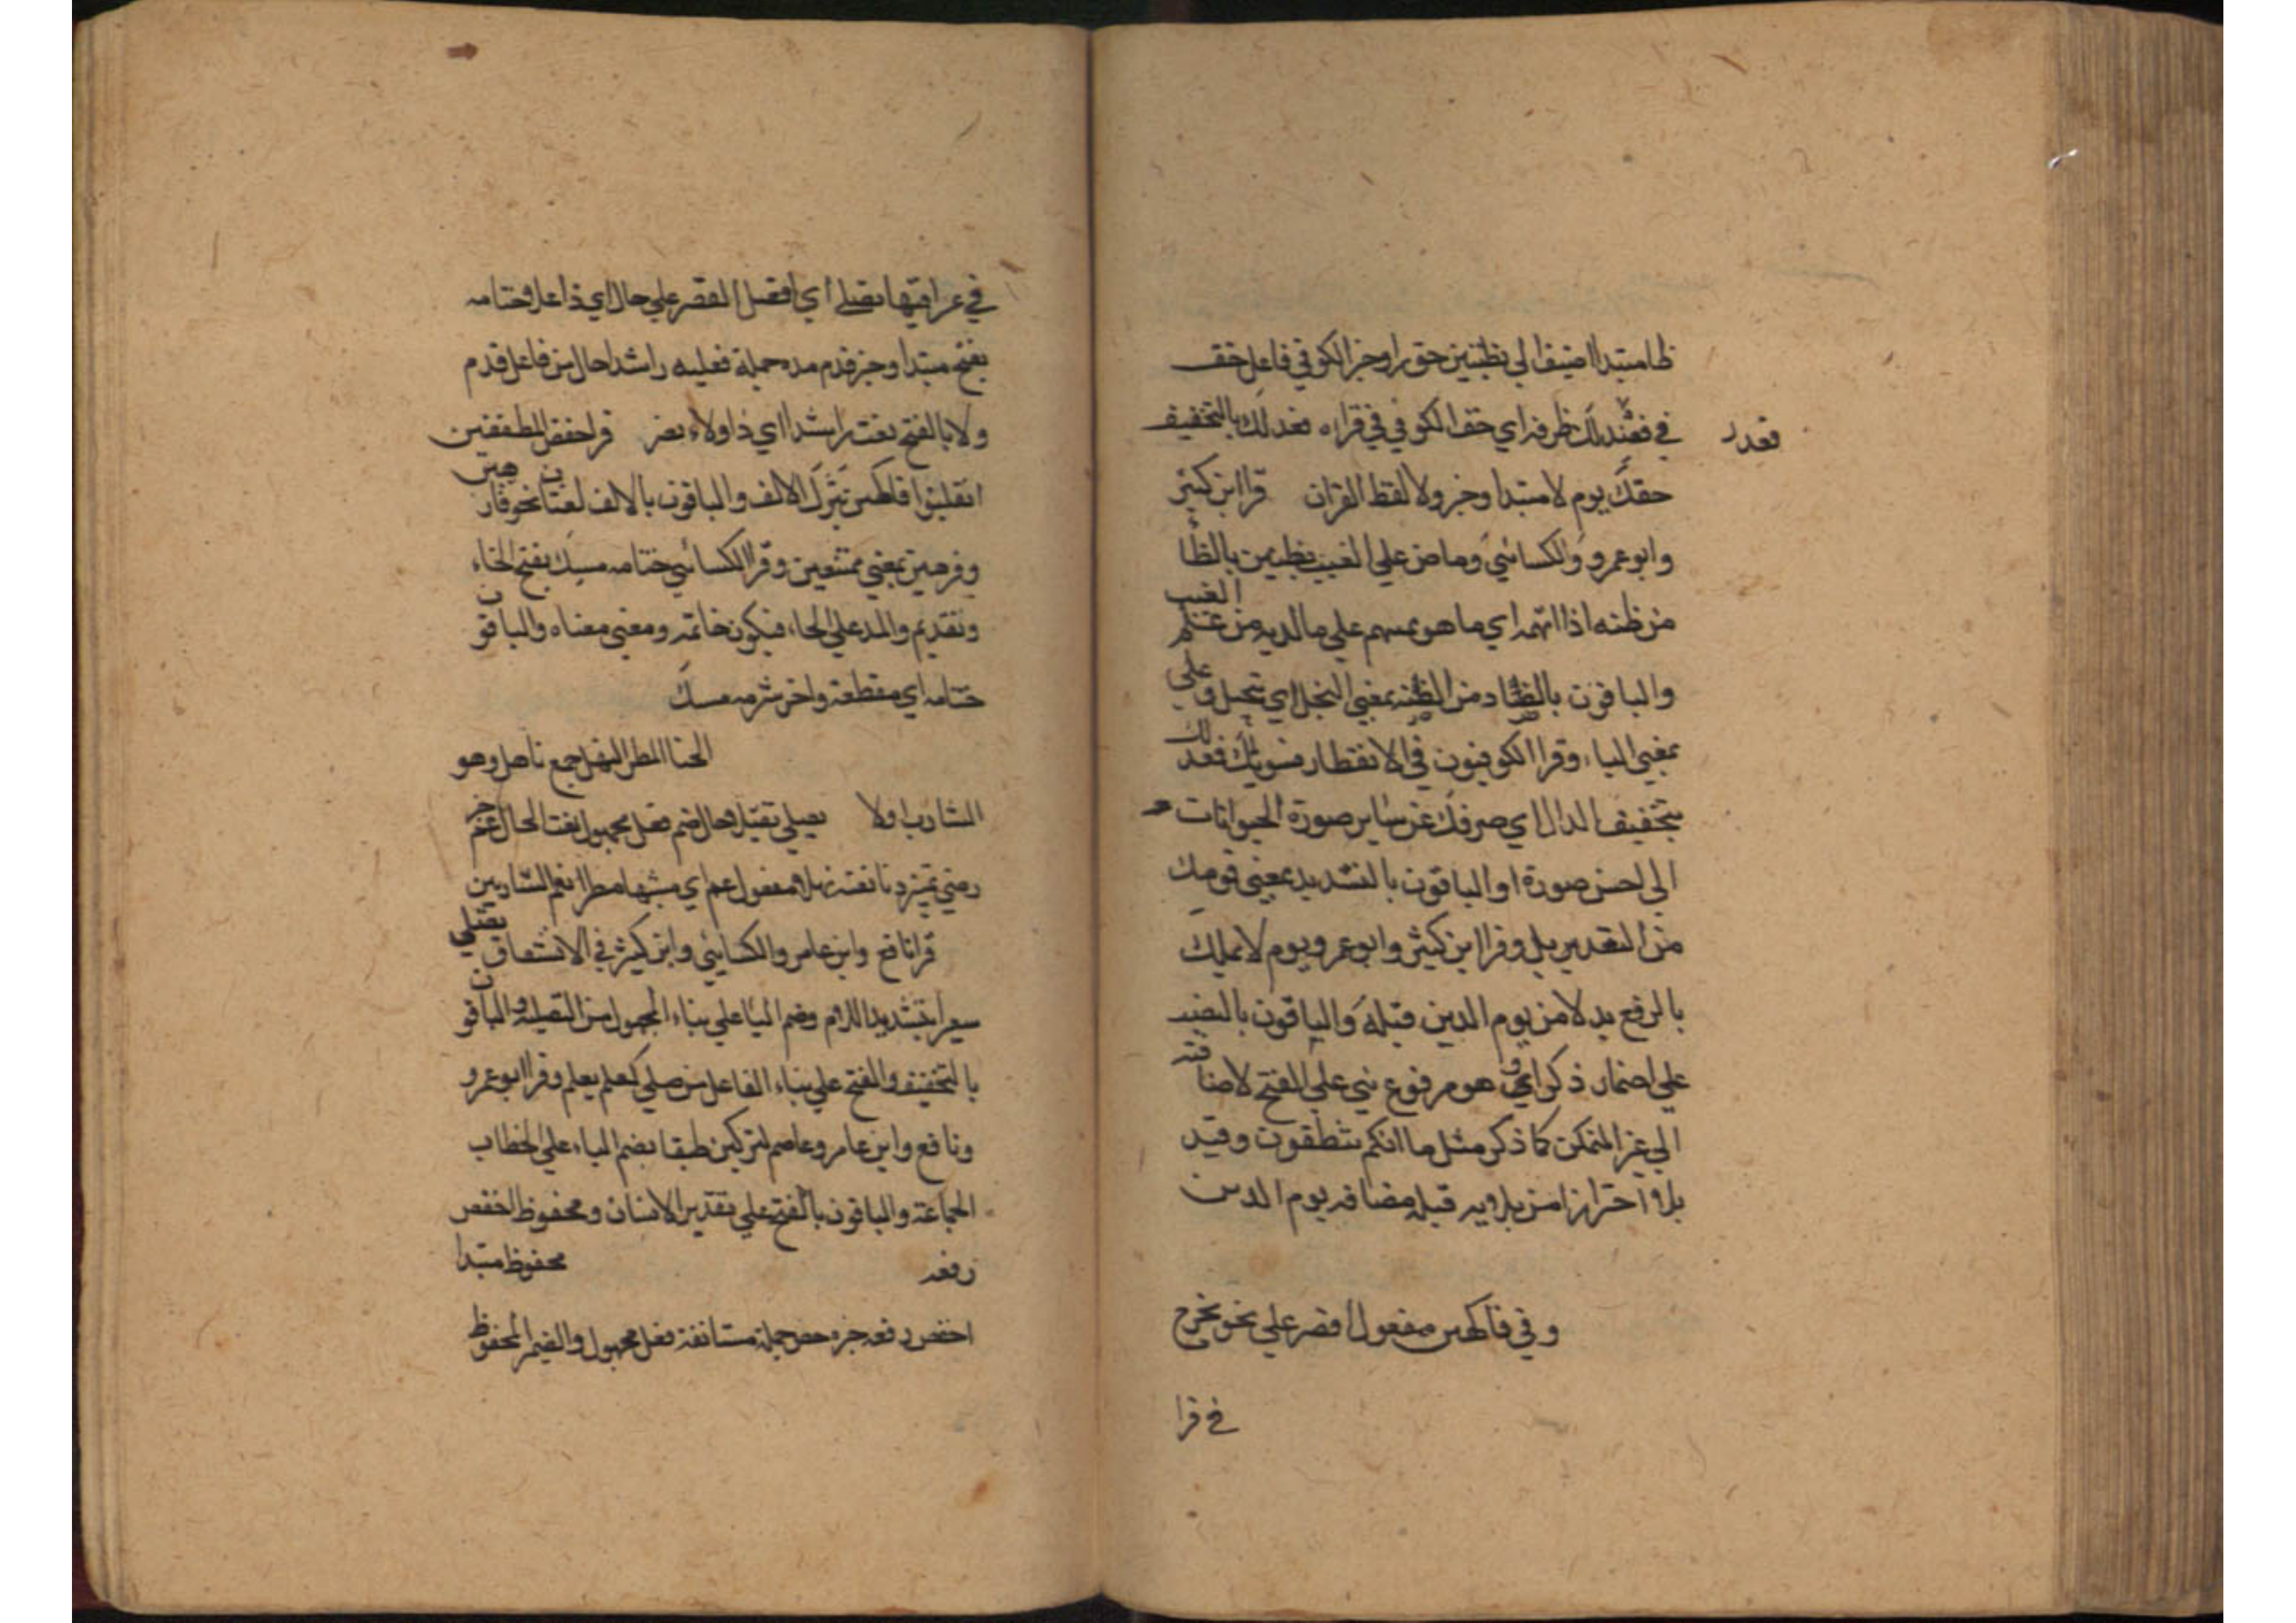 ظا مبتدا اضيف الي بظنين حق راو خبر الكوفي فاعل خف
في فعدلك ظرفه اي خف الكوفي في قراه فعدلك بالتخفيف
فعدل
حقك يوم لا مبتدا وخبر ولا لفظ القران قرا ابن كثير
وابو عمرو والكسائي وما هو علي الغيب بظنين بالظا
من ظنه اذا اتهمه اي ما هو بمتهم علي ما لديه من علم الغيب
والباقون بالضاد من الضنه بمعني البخل اي بخيل وعلي
بمعني الباء وقرا الكوفيون في الانفطار فسويك فعدلك
بتخفيف الدال اي صرفك عن ساير صورة الحيوانات
الي احسن صورة او الباقون بالتشديد بمعني قومك
من التعديل وقرا ابن كثير وابو عمرو يوم لا تملك
بالرفع بدلا من يوم الدين قبله والباقون بالنصب
علي اضمار ذكر اي هو مرفوع بني علي الفتح لاضافته
الي غير المتمكن كما ذكر مثل ما انكم تنطقون وقيد
بلا احترازا من قبله مضافه يوم الدين
وفي فاكهين مفعول اقصر علي نحو تخرج
في قرا
في اي اقصر علي حال اي ذا علا وختامه
بفتح مبتدا وخبر قدم مده جملة فعليه راشدا حال من فاعل قدم
ولا بالفتح نعت راشدا اي ذا ولاء نصر قرا حفص المطففين
انقلبوا فكهين بترك الالف والباقون بالالف لغتان نحو فارهين
وفرهين بمعني متنعمين وقرا الكسائي ختامه مسك بفتح الخاء
وتقديم والمد علي الخاء فيكون خاتمه ومعني معناه والباقون
ختامه اي مقطعه واخر شربه مسك
الحنا المطر النهل جمع ناهل وهو
الشارب اولا يصلي ثقيل وحال ضم فعل مجهول نعت الحال عم خبر
رضي تميز دنا نعته نهلا مفعول عم اي مشبها مطرا نعم الشاربين
قرا نافع وابن عامر والكسائي وابن كثير في الانشقاق يصلي
سعيرا بتشديد اللام وضم اليا علي بناء المجهول من التصليه والباقون
بالتخفيف والفتح علي بناء الفاعل من صلي كعلم يعلم وقرا ابو عمرو
ونافع وابن عامر وعاصم لتركبن طبقا بضم الباء علي خطاب
الجماعة والباقون بالفتح علي تقدير الانسان ومحفوظ اخفض
رفعه محفوظ مبتدا
اخفض رفعه خبره خص جملة مستانفة فعل مجهول والضمير لمحفوظ